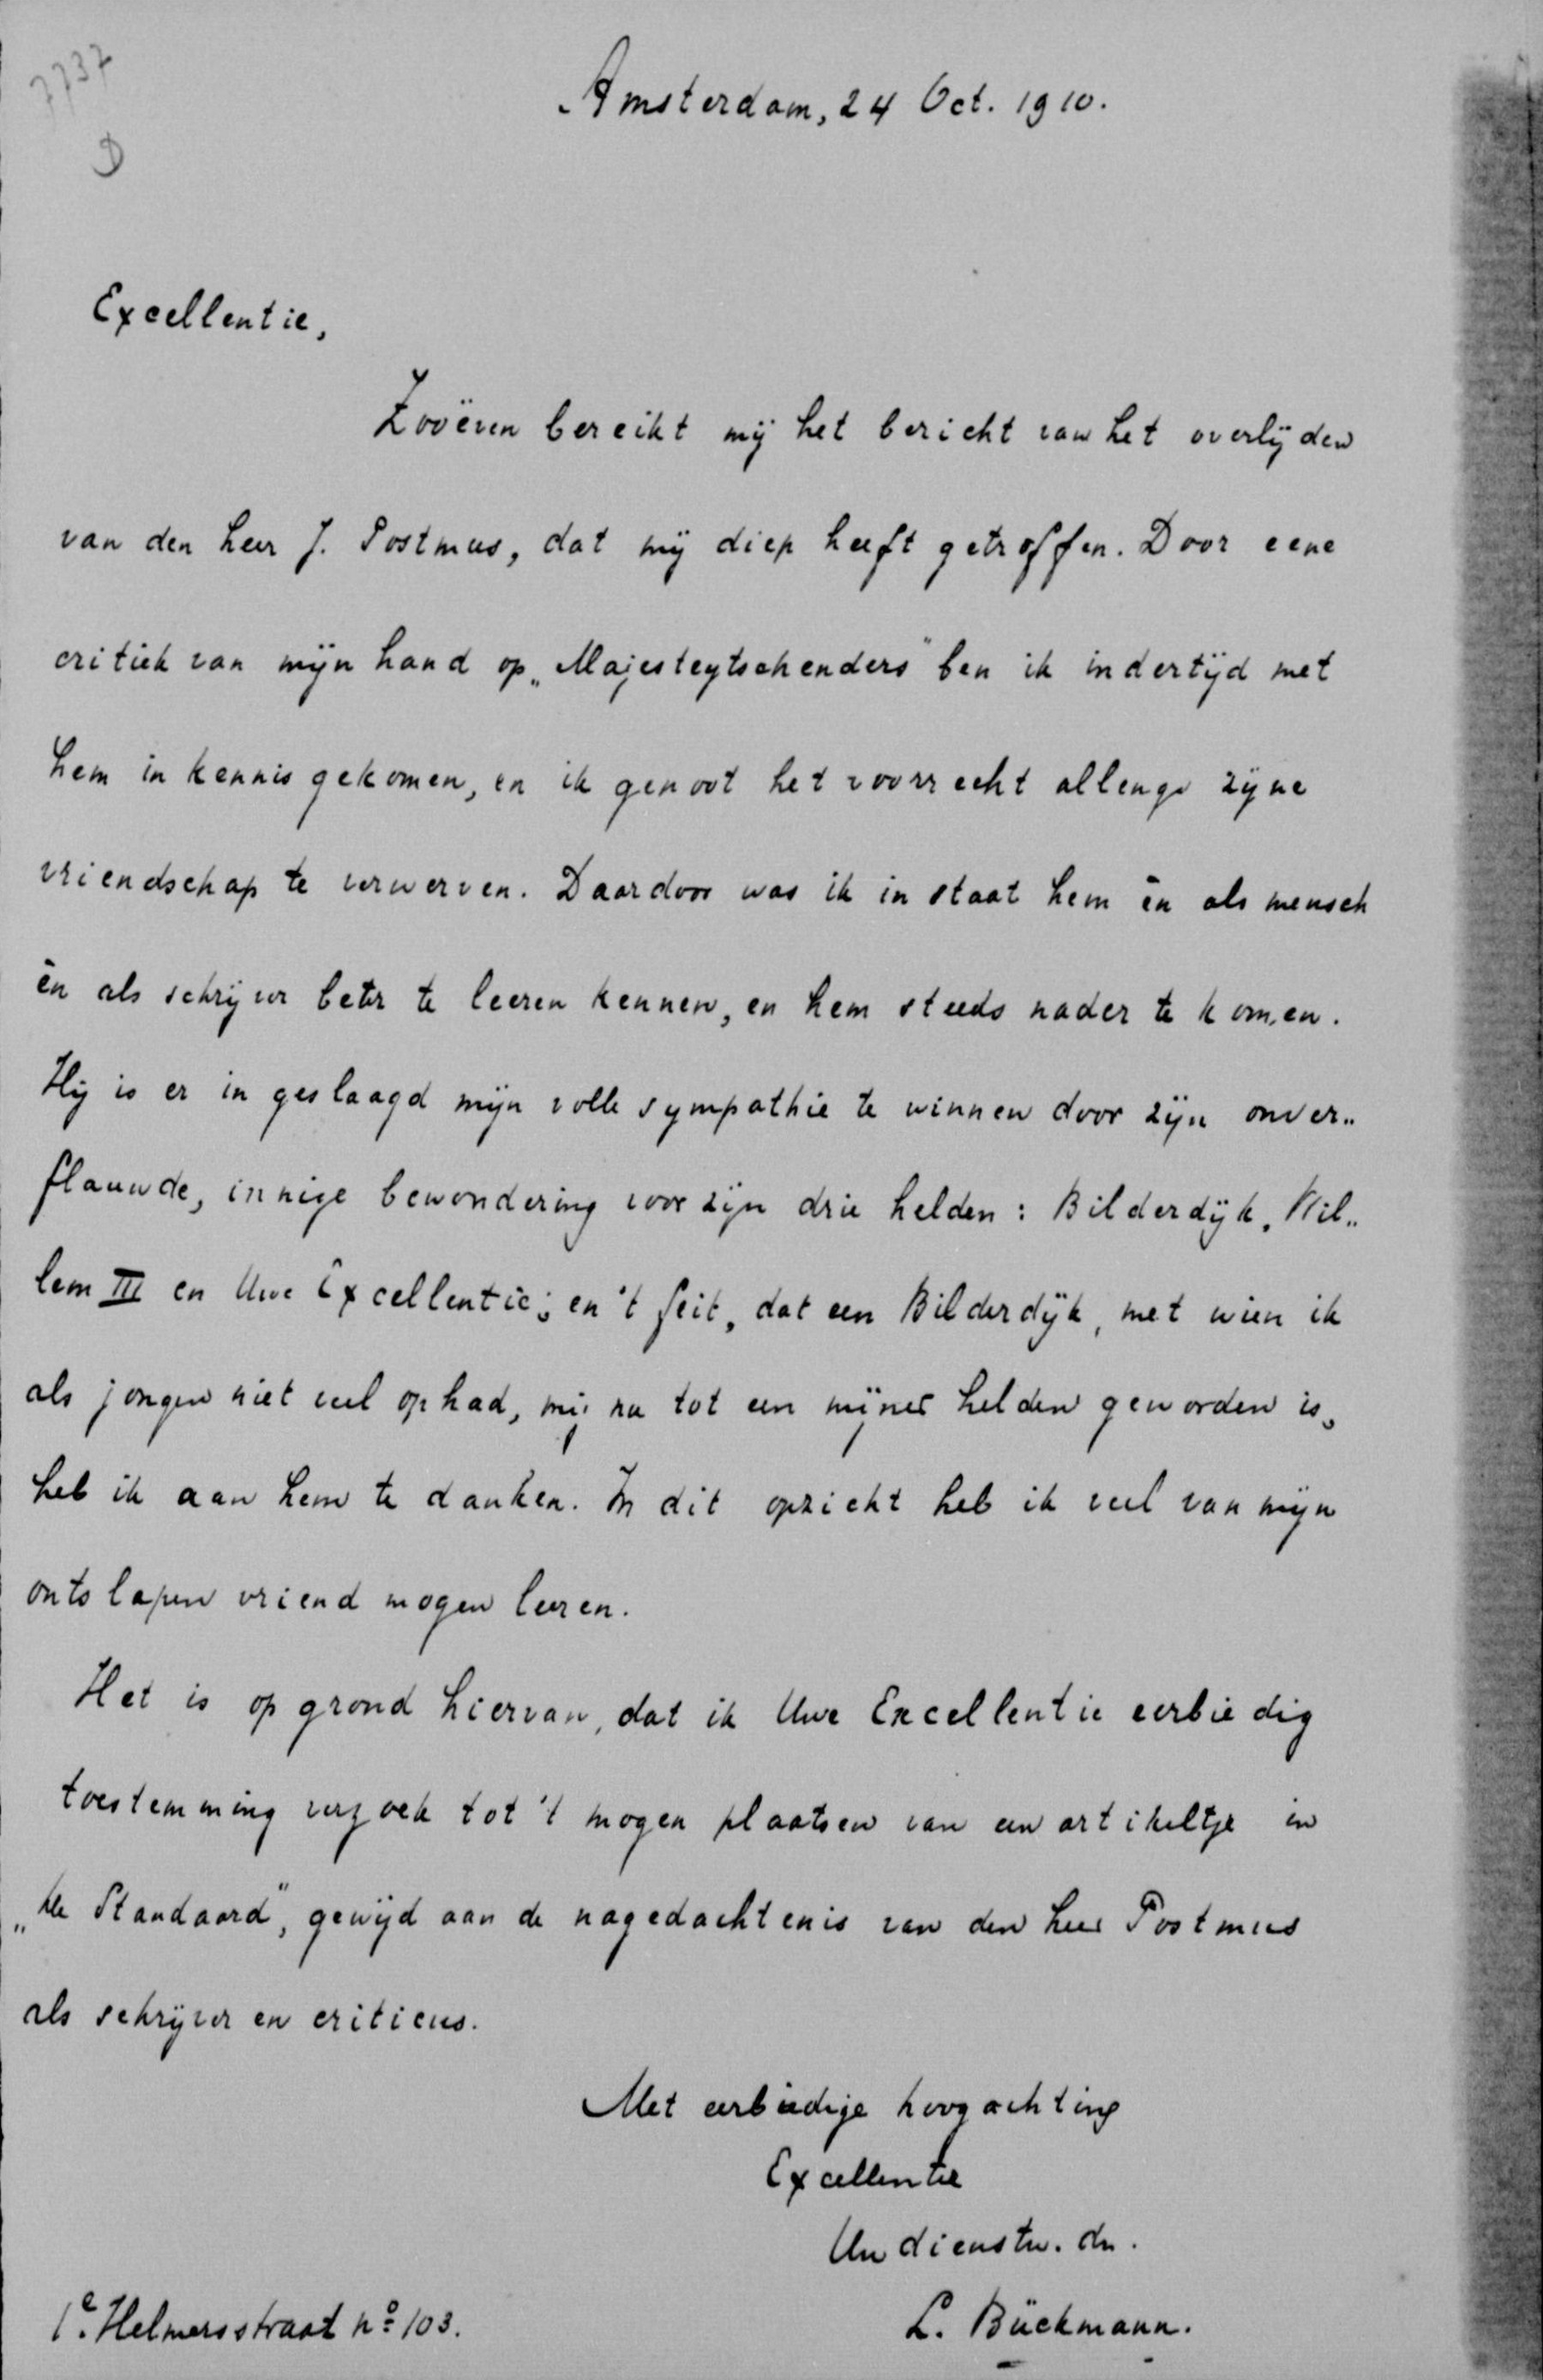 7737
D
Amsterdam, 24 Oct. 1910.
Excellentie,
Zooëven bereikt mij het bericht van het overlijden
van den heer J. Postmus, dat mij diep heeft getroffen. Door eene
critiek van mijn hand op „Majesteytschenders" ben ik indertijd met
hem in kennis gekomen, en ik genoot het voorrecht allengs zijne
vriendschap te verwerven. Daardoor was ik in staat hem èn als mensch
èn als schrijver beter te leeren kennen, en hem steeds nader te komen.
Hij is er in geslaagd mijn volle sympathie te winnen door zijn onver„
flauwde, innige bewondering voor zijn drie helden: Bilderdijk, Wil„
lem III en Uwe Excellentie; en 't feit, dat een Bilderdijk, met wien ik
als jongen niet veel op had, mij nu tot een mijner helden geworden is,
heb ik aan hem te danken. In dit opzicht heb ik veel van mijn
ontslapen vriend mogen leeren.
Het is op grond hiervan, dat ik Uwe Excellentie eerbiedig
toestemming verzoek tot 't mogen plaatsen van een artikeltje in
„De Standaard", gewijd aan de nagedachtenis van den heer Postmus
als schrijver en criticus.
Met eerbiedige hoogachting
Excellentie
Uw dienstw. dn.
1e. Helmersstraat no 103.
L. Bückmann.